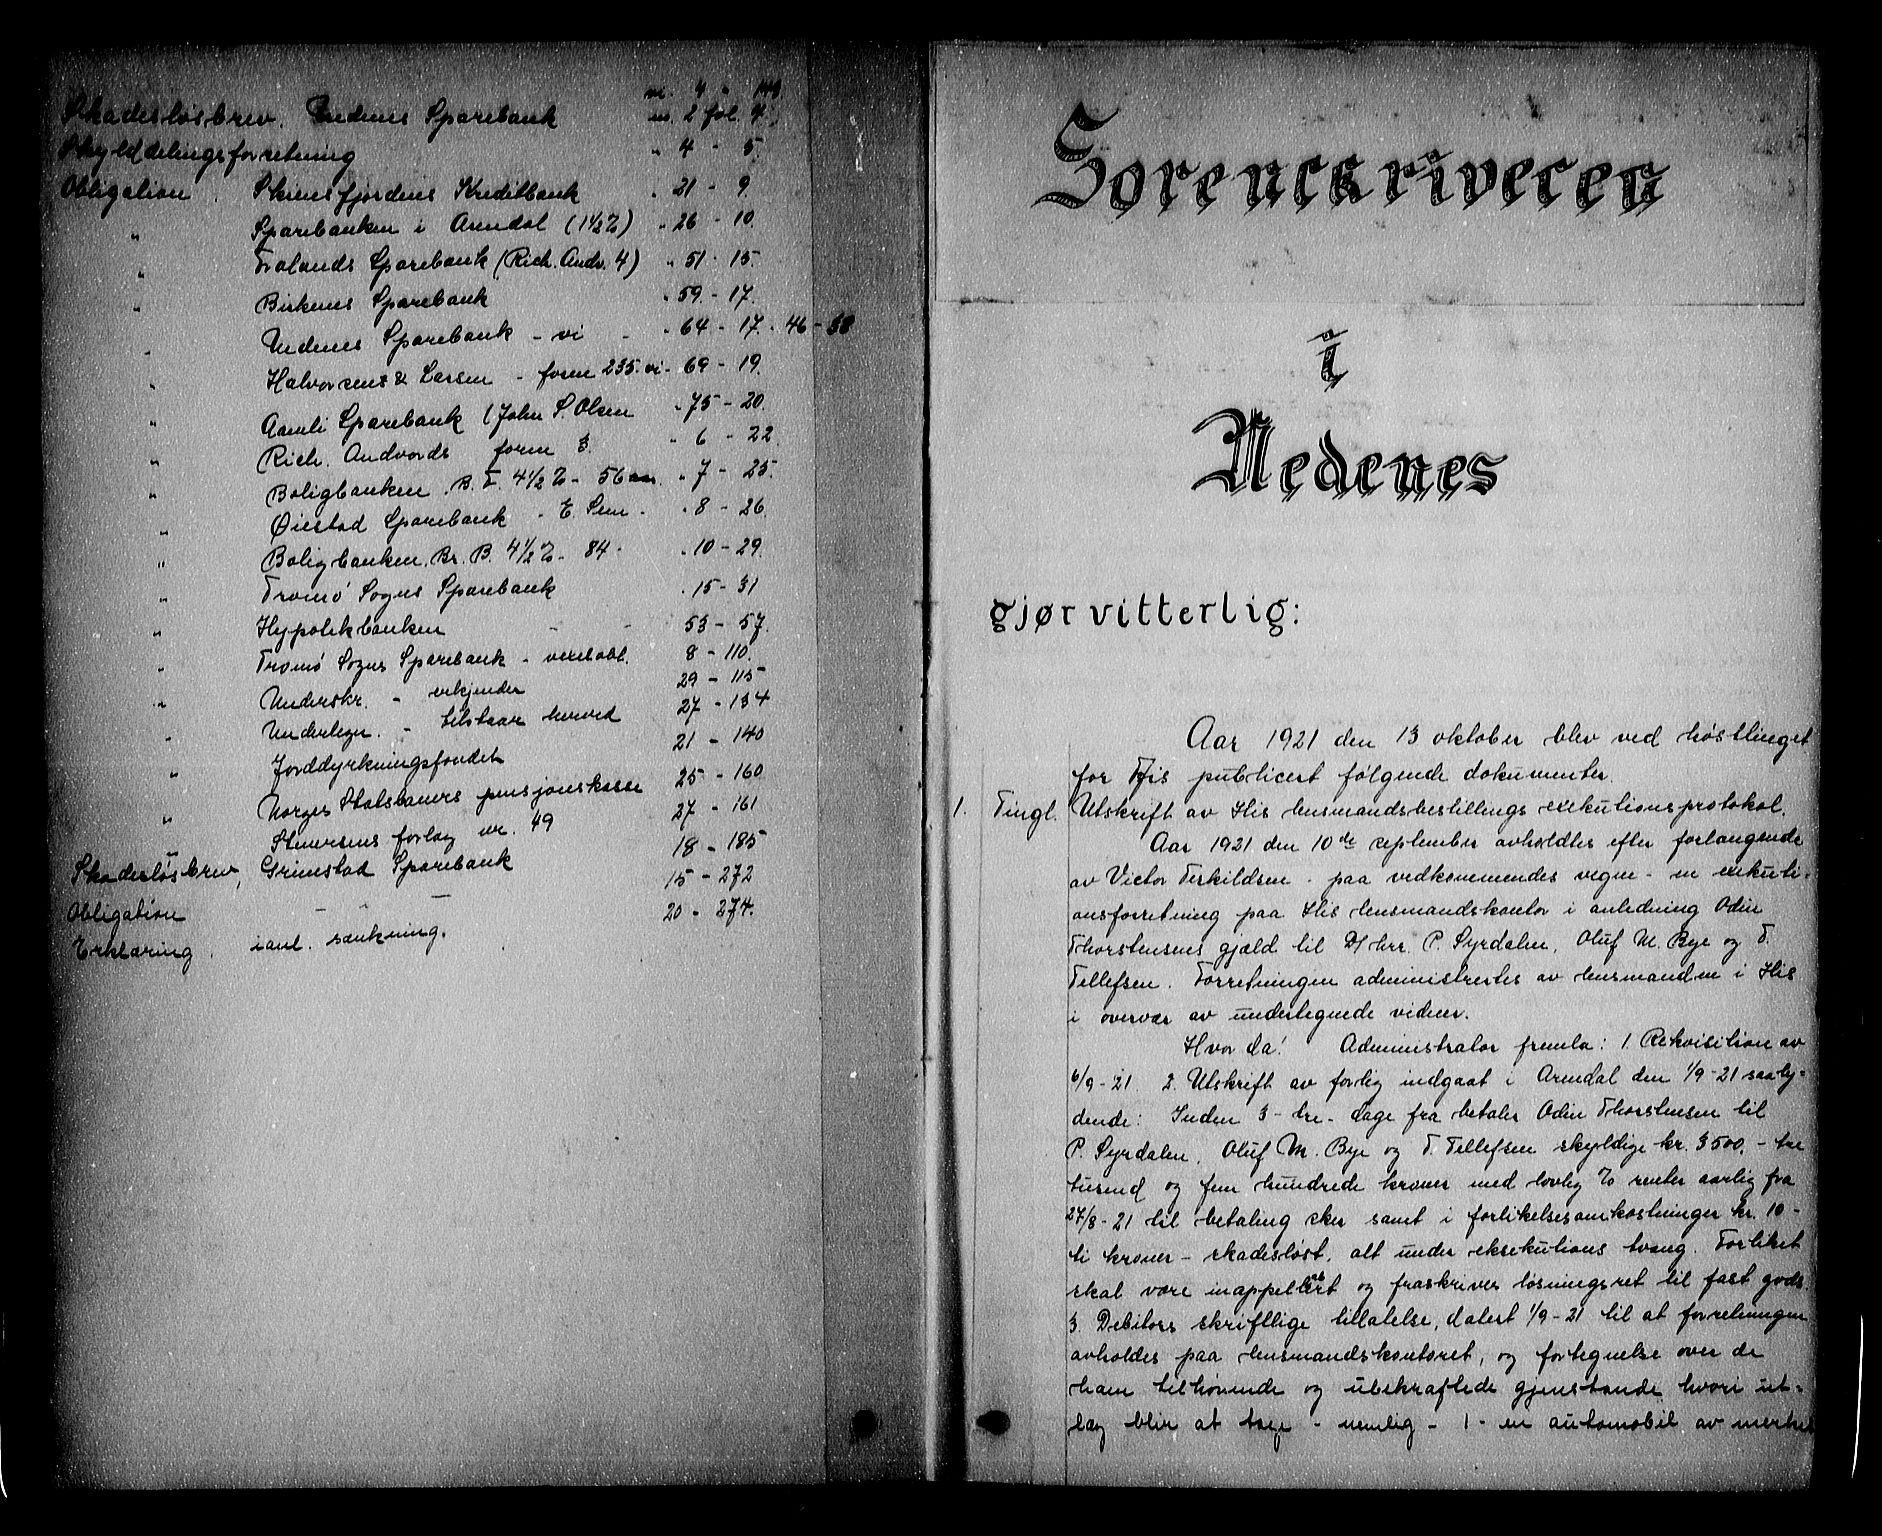 vi. 4 - 149
Skadesløsbrev. Nedenes Sparebank m. 2 fol. 4.
Skylddelingsforretning " 4 - 5.
Obligation. Skiensfjordens Kreditbank " 21 - 9.
" Sparebanken i Arendal (1½%) " 26 - 10.
" Frolands Sparebank (Rich. Andv. 4) " 51 - 15.
" Birkenes Sparebank " 59 - 17.
" Nedenes Sparebank - vi - " 64 - 17. - 46 - 58
" Halvorsens & Larsen - form 235. vi - 69 - 19.
" Aamli Sparebank (John S. Olsen " 75 - 20.
" Rich. Andvords form 3. " 6 - 22.
" Boligbanken. B. F. 4½% - 56 " 7 - 25.
" Øiestad Sparebank - E. Sem - " 8 - 26.
" Boligbanken. Br. B. 4½% - 84 - " 10 - 29.
" Tromø Sogns Sparebank " 15 - 31
" Hypotekbanken - - 53 - 57.
" Tromø Sogns Sparebank - vexelobl. 8 - 110.
" Underskr. - erkjender 29 - 115
" Undertegn. - tilstaar herved 27 - 134
" Jorddyrkningsfondet 21 - 140
" Norges Statsbaners pensjonskasse 25 - 160
" Stenersens forlag nr. 49 27 - 161
Skadesløsbrev, Grimstad Sparebank 18 - 185
Obligation - - 15 - 272
Erklæring. i anl. sænkning. 20 - 274.
Sorenskriveren
i
Nedenes
gjør vitterlig:
Aar 1921 den 13 oktober blev ved høsttinget
for His publicert følgende dokumenter.
1. Tingl. Utskrift av His lensmandsbestillings exekutionsprotokol.
Aar 1921 den 10de september avholdtes efter forlangende
av Victor Terkildsen - paa vedkommendes vegne - en exekuti-
onsforretning paa His lensmandskontor i anledning Odin
Thorstensens gjæld til D/hrr. P. Syrdalen, Oluf M. Bye og T.
Tellefsen. Forretningen administrertes av lensmanden i His
i overvær av undertegnede vidner.
Hvor da! Administrator fremla: 1. Rekvisition av
6/9 - 21. 2. Utskrift av forlig indgaat i Arendal den 1/9 - 21 saaly-
dende: Inden 3 - tre - dage fra betaler Odin Thorstensen til
P. Syrdalen, Oluf M. Bye og T. Tellefsen skyldige kr. 3500, - tre
tusend og fem hundrede kroner med lovlig % renter aarlig fra
27/8 - 21 til betaling sker samt i forlikelsesomkostninger kr. 10 -
ti kroner - skadesløst, alt under eksekutions tvang. Forliket
skal være inappellabelt og fraskriver løsningsret til fast gods.
3. Debitors skriftlige tillatelse, datert 1/9 - 21 til at forretningen
avholdes paa lensmandskontoret, og fortegnelse over de
ham tilhørende og ubekræftede gjenstande hvori ut-
læg blir at tage - nemlig - 1 - en automobil av merket